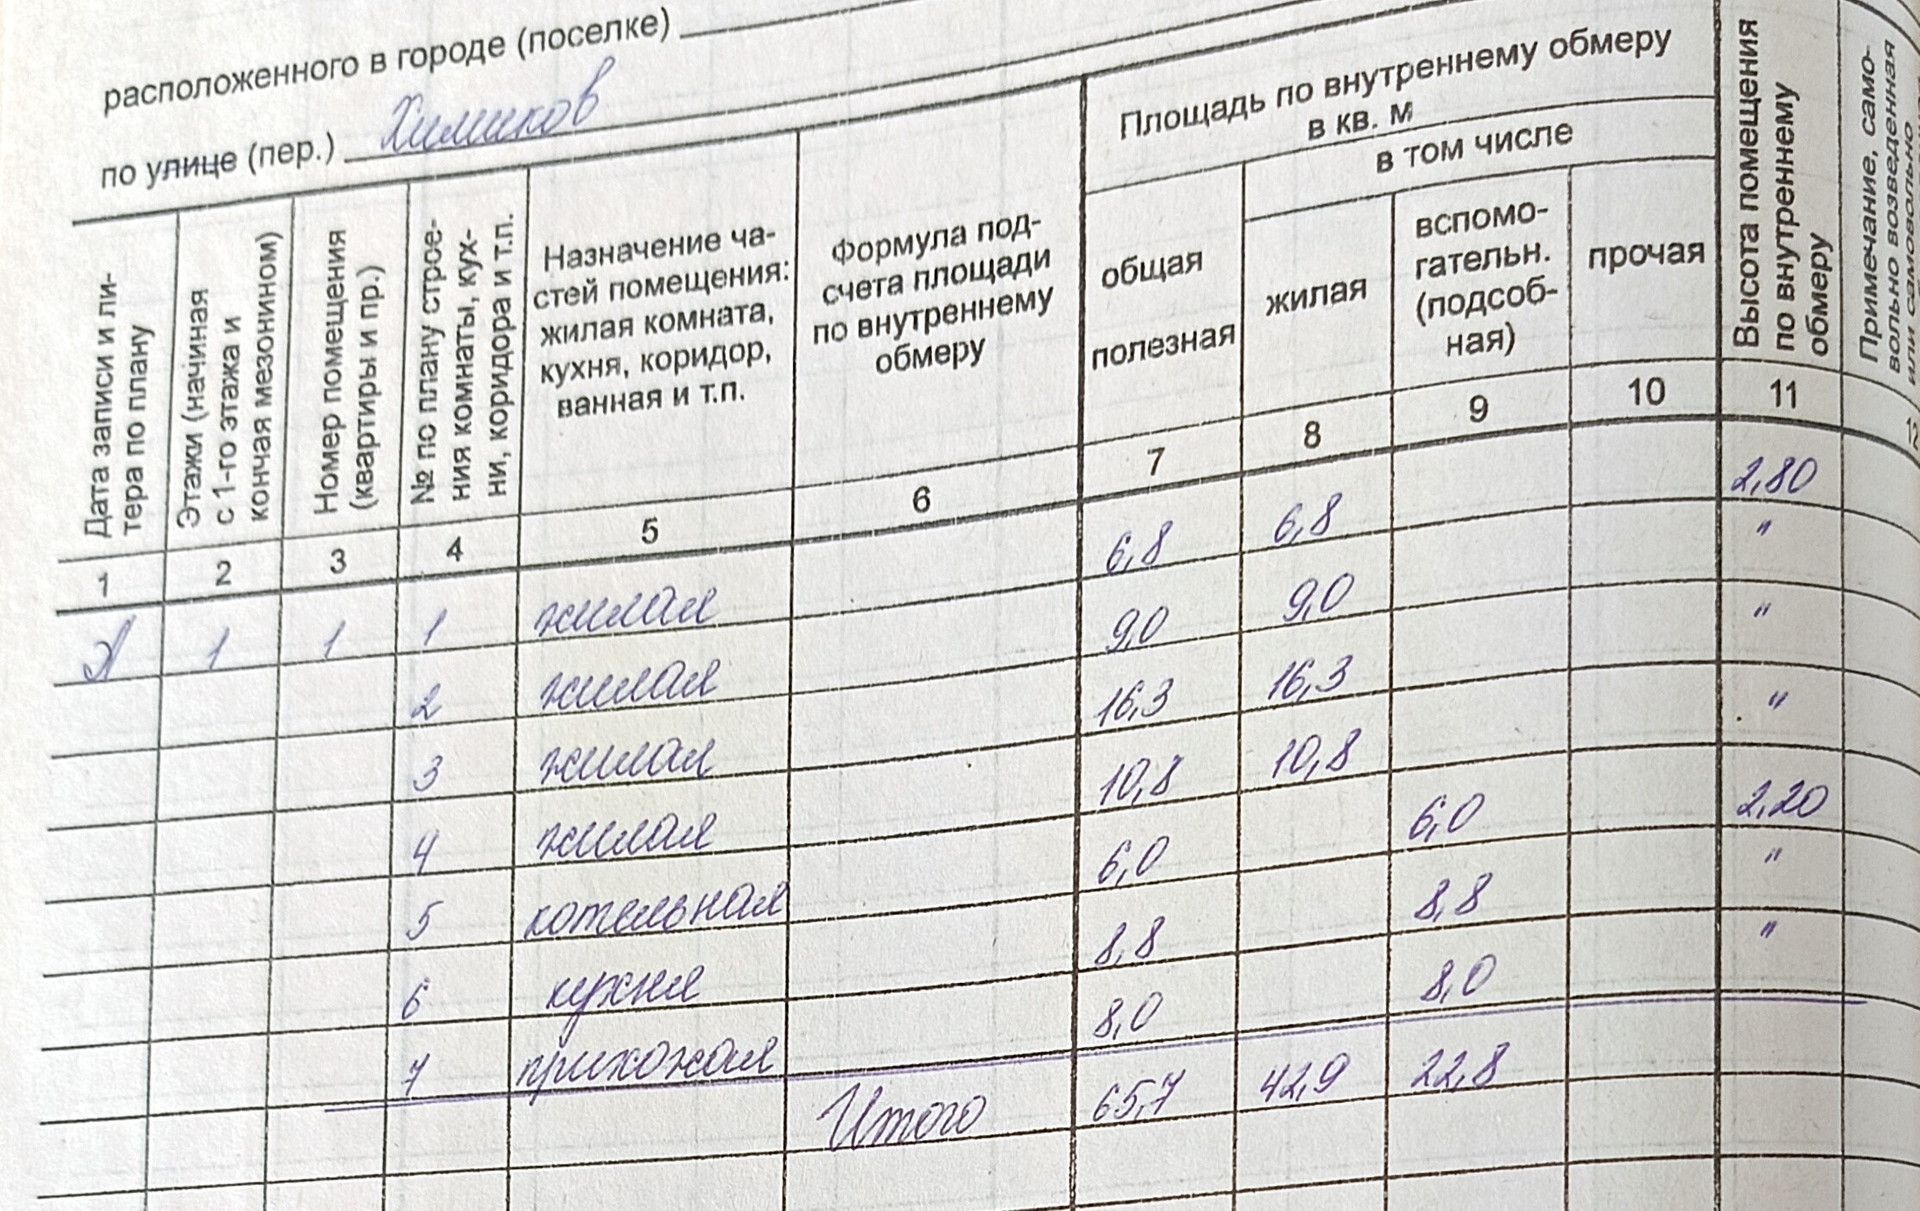 расположенного в городе (поселке)
по улице (пер.) Химиков
Дата записи и ли-
тера по плану
Этажи (начиная
с 1-го этажа и
кончая мезонином)
Номер помещения
(квартиры и пр.)
№ по плану строе-
ния комнаты, кух-
ни, коридора и т.п.
Назначение ча-
стей помещения:
жилая комната,
кухня, коридор,
ванная и т.п.
Формула под-
счета площади
по внутреннему
обмеру
Площадь по внутреннему обмеру
в кв. м
в том числе
общая
полезная
жилая
вспомо-
гательн.
(подсоб-
ная)
прочая
Высота помещения
по внутреннему
обмеру
Примечание, само-
вольно возведенная
или самовольно
1 2 3 4 5 6 7 8 9 10 11 12
А 1 1 1 жилая 6,8 6,8 2,80
2 жилая 9,0 9,0 "
3 жилая 16,3 16,3 "
4 жилая 10,8 10,8 "
5 котельная 6,0 6,0 2,20
6 кухня 8,8 8,8 "
7 прихожая 8,0 8,0 "
Итого 65,7 42,9 22,8